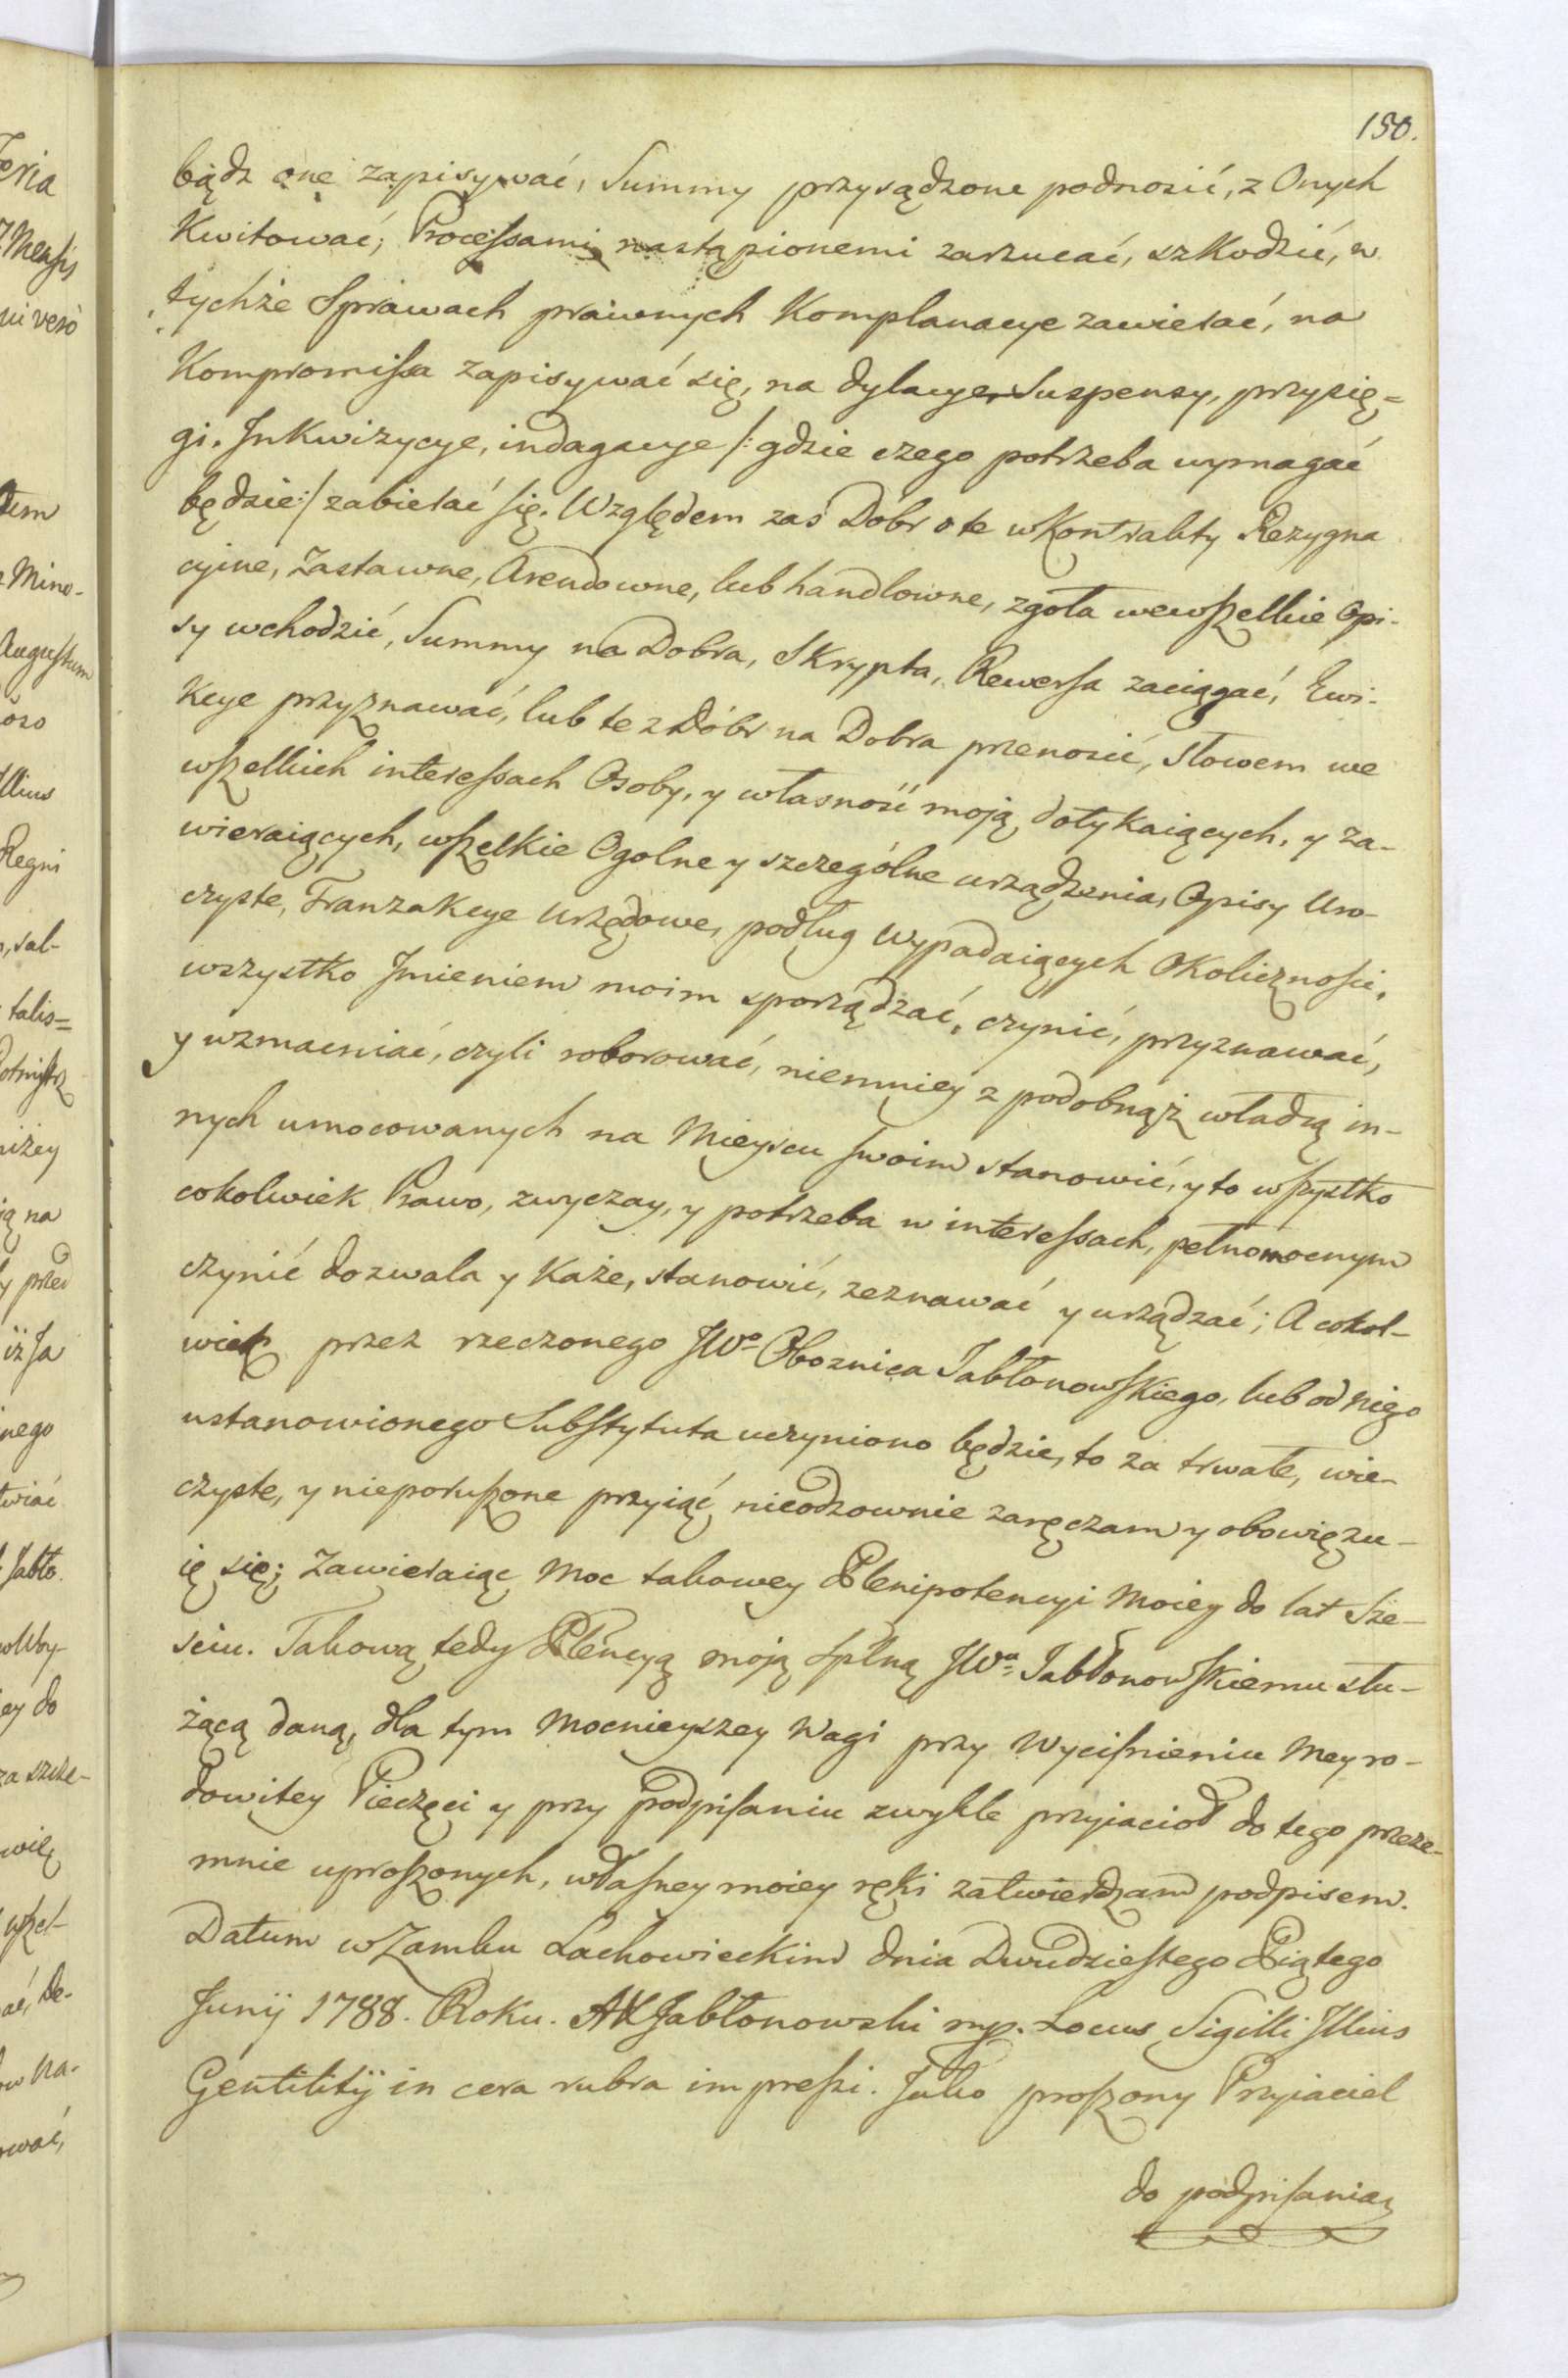 150.
bądz one zapisywać, Summy przysądzone podnosić, z Onych
Kwitować, Processami nastąpionemi zarzucać, szkodzić, w
tychże Sprawach prawnych Komplanacye zawierać, na
Kompromissa zapisywać się, na dylacye, Suspensy, przysię=
gi, Inkwizycye, indagacye /: gdzie czego potrzeba wymagać
będzie :/ zabierać się. Względem zaś Dóbr o te w Kontrakty Rezygna
cyine, Zastawne, Arendowne, lub handlowne, zgoła wewszelkie Opi-
sy wchodzić, Summy na Dobra, Skrypta, Rewersa zaciągać, Ewi-
kcye przyznawać, lub te z Dóbr na Dobra przenosić, słowem we
wszelkich interessach Osoby, y własność moją dotykaiących, y za-
wieraiących, wszelkie Ogolne y szczególne urządzenia, Opisy Uro-
czyste, Tranzakcye Urzędowe, podług wypadaiących Okoliczności,
wszystko Imieniem moim sporządzać, czynić, przyznawać,
y wzmacniać, czyli roborować, niemniey z podobnąż władzą in-
nych umocowanych na Mieyscu swoim stanowić, y to wszystko
cokolwiek Prawo, zwyczay, y potrzeba w interessach, pełnomocnym
czynić dozwala y Każe, stanowić, zeznawać y urządzać; A cokol-
wiek przez rzeczonego JWo Oboznica Jabłonowskiego, lub od niego
ustanowionego Substytuta uczyniono będzie, to za trwałe, wie-
czyste, y nieporuszone przyiąć nieodzownie zaręczam y obowięzu-
ię się; Zawieraiąc Moc takowey Plenipotencyi Moiey do lat Sze-
sciu. Takową tedy Plencyą moją Splną JWu Jabłonowskiemu słu-
żącą daną, dla tym Mocnieyszey Wagi przy Wyciśnieniu Mey ro-
dowitey Pieczęci y przy podpisaniu zwykle przyiacioł do tego przeze-
mnie uproszonych, własney moiey ręki zatwierdzam podpisem.
Datum w Zamku Lachowieckim dnia Dwudziestego Piątego
Junij 1788. Roku. AX Jabłonowski mp. Locus Sigilli Illius
Gentilitij in cera rubra impressi. Jako proszony Przyiaciel
do podpisania